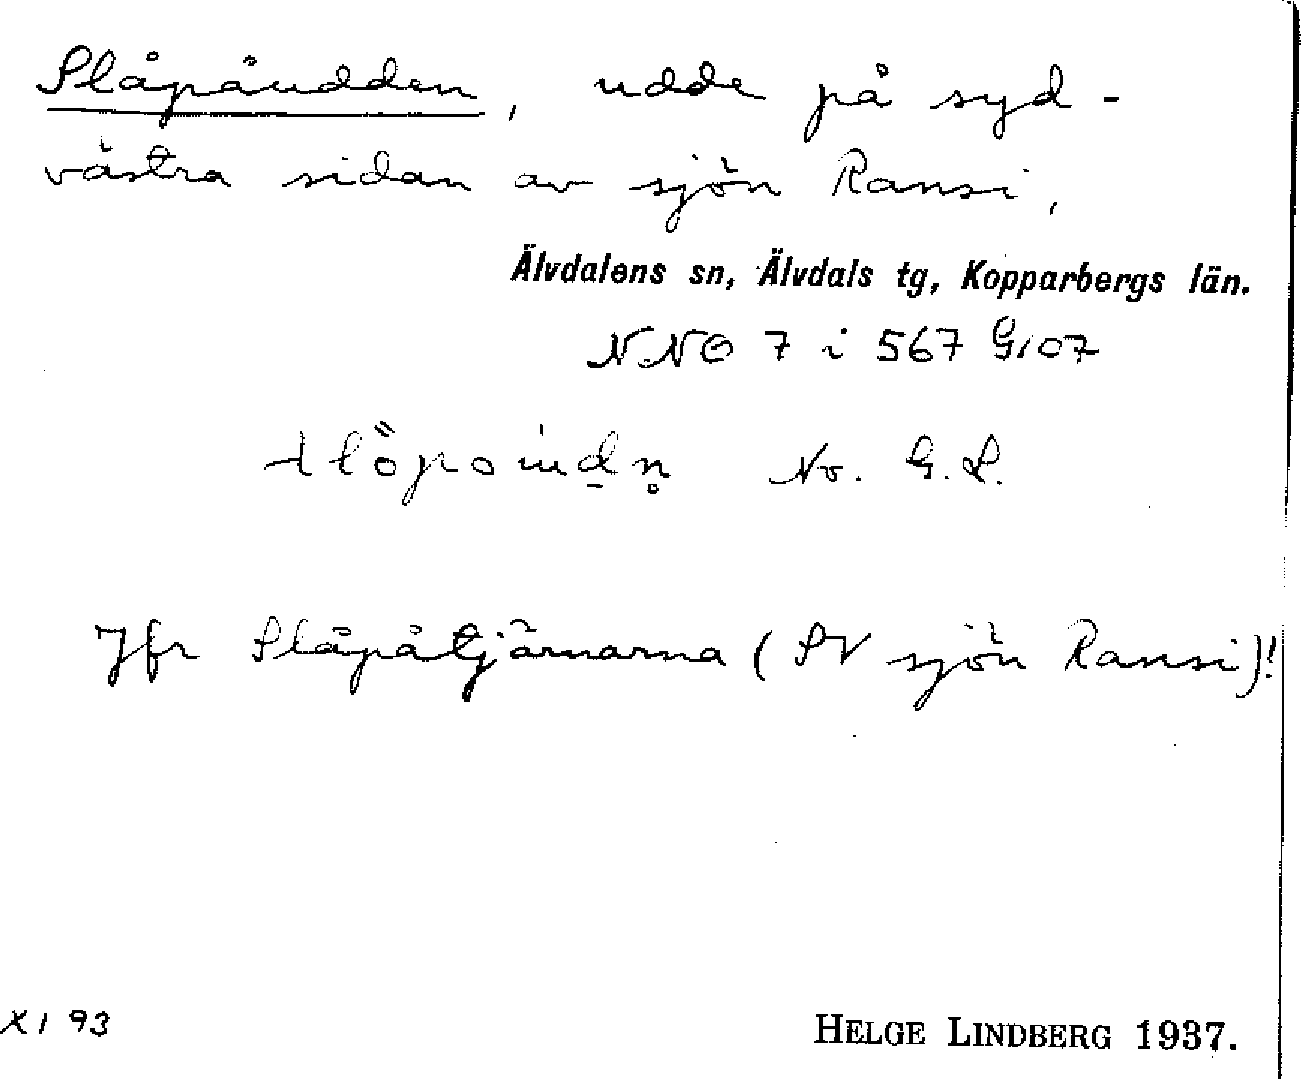 Slåpåudden, udde på syd-
västra sidan av sjön Ransi,
Älvdalens sn, Älvdals tg, Kopparbergs län.
NNO 7 i 567 G107
No. G. L.
Jfr Slåpåtjärnarna (SV sjön Ransi)!
XI 93
HELGE LINDBERG 1937.